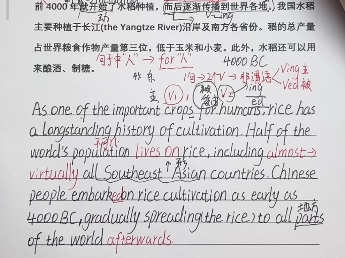 前 4000 年就开始了水稻种植,而后逐渐传播到世界各地。我国水稻
主要种植于长江(the Yangtze River)沿岸及南方各省份。稻的总产量
占世界粮食作物产量第三位,低于玉米和小麦。此外,水稻还可以用
来酿酒、制糖。
句子中"人" → for "人"
4000 BC
1句→2个V→非谓语
Ving 主
Ved 被
主 V1 , V2 ing
ed
As one of the important crops for humans, rice has
a longstanding history of cultivation. Half of the
world's population lives on rice, including almost→
virtually all Southeast Asian countries. Chinese
people embarked on rice cultivation as early as
4000 BC, gradually spreading (the rice) to all parts
地方
of the world afterwards.